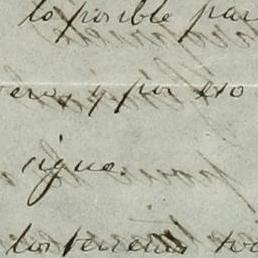 lo posible par
eros, y por eso
sigue.
los terrenos to